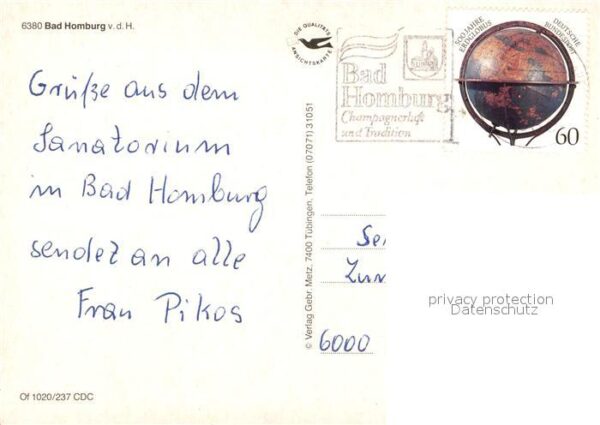 6380 Bad Homburg v. d. H.
Grüße aus dem
Sanatorium
in Bad Homburg
sendet an alle
Frau Pikos
Of 1020/237 CDC
DIE QUALITÄTS
ANSICHTSKARTE
© Verlag Gebr. Metz, 7400 Tübingen, Telefon (07071) 31051
Bad
Homburg
Champagnerluft
und Tradition
500 JAHRE
ERDGLOBUS
DEUTSCHE
BUNDESPOST
60
6000
privacy protection
Datenschutz